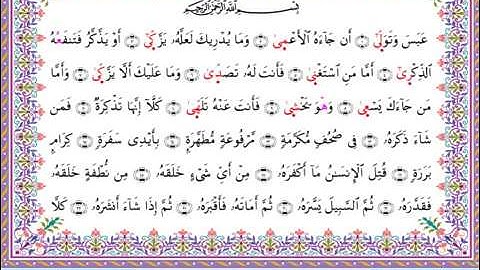 بِسْمِ اللَّهِ الرَّحْمَٰنِ الرَّحِيمِ
عَبَسَ وَتَوَلَّىٰ ۝ أَن جَآءَهُ ٱلْأَعْمَىٰ ۝ وَمَا يُدْرِيكَ لَعَلَّهُۥ يَزَّكَّىٰ ۝ أَوْ يَذَّكَّرُ فَتَنفَعَهُ
ٱلذِّكْرَىٰٓ ۝ أَمَّا مَنِ ٱسْتَغْنَىٰ ۝ فَأَنتَ لَهُۥ تَصَدَّىٰ ۝ وَمَا عَلَيْكَ أَلَّا يَزَّكَّىٰ ۝ وَأَمَّا
مَن جَآءَكَ يَسْعَىٰ ۝ وَهُوَ يَخْشَىٰ ۝ فَأَنتَ عَنْهُ تَلَهَّىٰ ۝ كَلَّآ إِنَّهَا تَذْكِرَةٌ ۝ فَمَن
شَآءَ ذَكَرَهُۥ ۝ فِى صُحُفٍ مُّكَرَّمَةٍ ۝ مَّرْفُوعَةٍ مُّطَهَّرَةٍۭ ۝ بِأَيْدِى سَفَرَةٍ ۝ كِرَامٍۭ
بَرَرَةٍ ۝ قُتِلَ ٱلْإِنسَٰنُ مَآ أَكْفَرَهُۥ ۝ مِنْ أَىِّ شَىْءٍ خَلَقَهُۥ ۝ مِن نُّطْفَةٍ خَلَقَهُۥ
فَقَدَّرَهُۥ ۝ ثُمَّ ٱلسَّبِيلَ يَسَّرَهُۥ ۝ ثُمَّ أَمَاتَهُۥ فَأَقْبَرَهُۥ ۝ ثُمَّ إِذَا شَآءَ أَنشَرَهُۥ ۝ كَلَّا